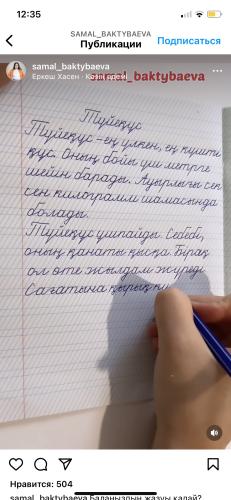 12:35
SAMAL_BAKTYBAEVA
Публикации
Подписаться
samal_baktybaeva
Еркеш Хасен · Қазақ әдемі
samal_baktybaeva
Түйеқұс
Түйеқұс – ең үлкен, ең күшті
құс. Оның бойы үш метрге
шейін барады. Ауырлығы сек
сен килограмм шамасында
болады.
Түйеқұс ұшпайды. Себебі,
оның қанаты қысқа. Бірақ
ол өте жылдам жүреді
Сағатына қырық ки
Нравится: 504
samal_baktybaeva Балаңыздың жазуы қалай?